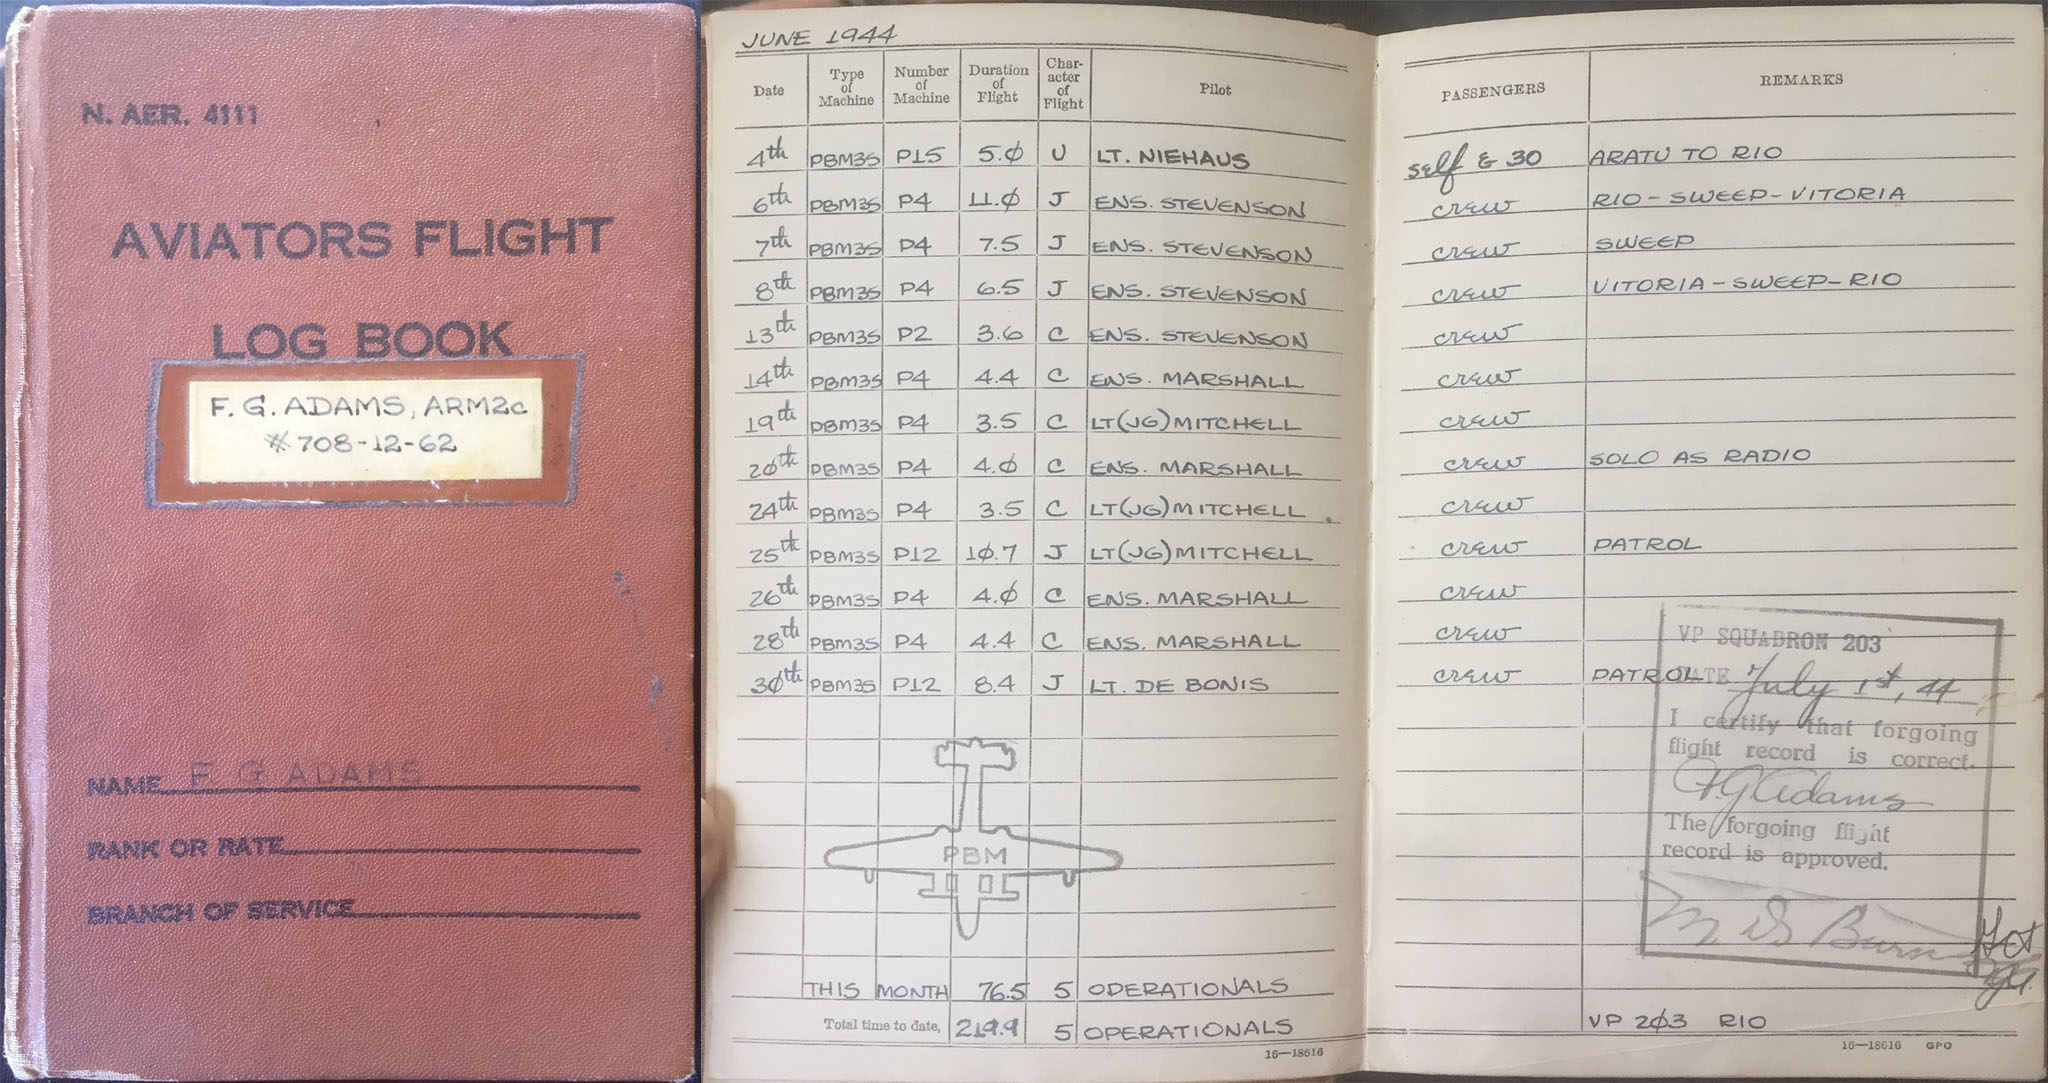 N. AER. 4111
AVIATORS FLIGHT
LOG BOOK
F. G. ADAMS, ARM2c
# 708-12-62
NAME F G ADAMS
RANK OR RATE
BRANCH OF SERVICE
JUNE 1944
Date Type of Machine Number of Machine Duration of Flight Char- acter of Flight Pilot PASSENGERS REMARKS
4th PBM3S P15 5.0 U LT. NIEHAUS self & 30 ARATU TO RIO
6th PBM3S P4 11.0 J ENS. STEVENSON crew RIO - SWEEP - VITORIA
7th PBM3S P4 7.5 J ENS. STEVENSON crew SWEEP
8th PBM3S P4 6.5 J ENS. STEVENSON crew VITORIA - SWEEP - RIO
13th PBM3S P2 3.6 C ENS. STEVENSON crew
14th PBM3S P4 4.4 C ENS. MARSHALL crew
19th PBM3S P4 3.5 C LT(JG) MITCHELL crew
20th PBM3S P4 4.0 C ENS. MARSHALL crew SOLO AS RADIO
24th PBM3S P4 3.5 C LT(JG) MITCHELL crew
25th PBM3S P12 10.7 J LT(JG) MITCHELL crew PATROL
26th PBM3S P4 4.0 C ENS. MARSHALL crew
28th PBM3S P4 4.4 C ENS. MARSHALL crew
30th PBM3S P12 8.4 J LT. DE BONIS crew PATROL
PBM
VP SQUADRON 203
DATE July 1st, 44
I certify that forgoing
flight record is correct.
F G Adams
The forgoing flight
record is approved.
THIS MONTH 76.5 5 OPERATIONALS
Total time to date, 219.9 5 OPERATIONALS VP 203 RIO
16—18616 16—18616 GPO